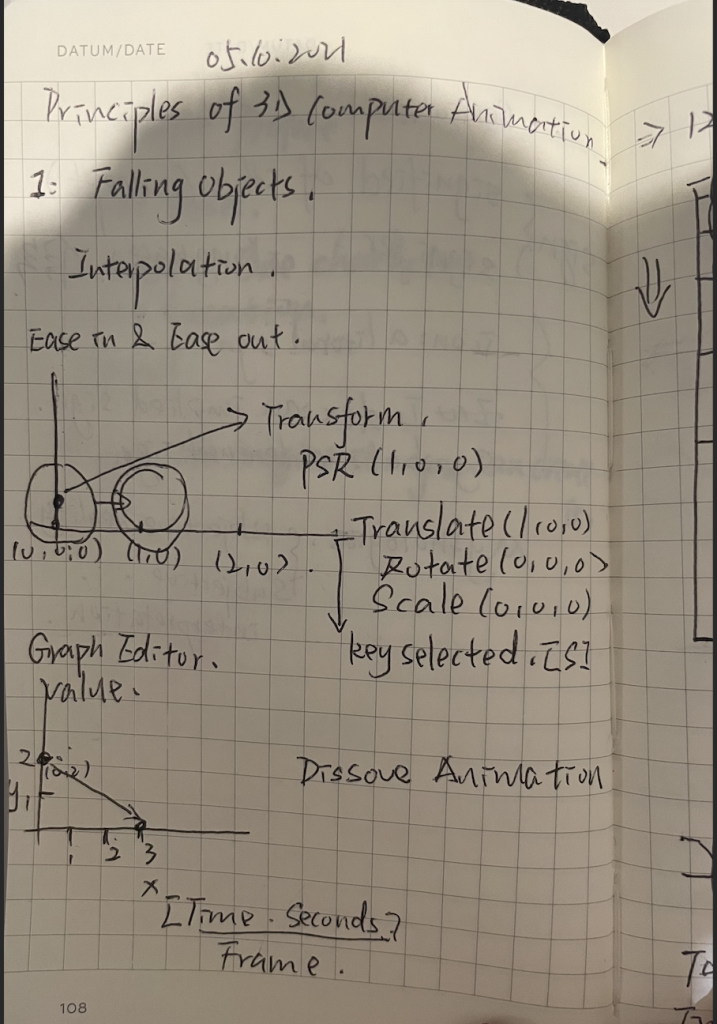 DATUM/DATE 05.10.2021
Principles of 3D Computer Animation.
1: Falling Objects.
Interpolation.
Ease in & Ease out.
Transform.
PSR (1,0,0)
(0,0,0) (1,0) (2,0).
Translate (1,0,0)
Rotate (0,0,0)
Scale (0,0,0)
key selected. [S]
Graph Editor.
Value.
2 (0,2)
y 1
1 2 3
x
[Time. Seconds]
Frame.
Dissove Animation
108
⇒ 12